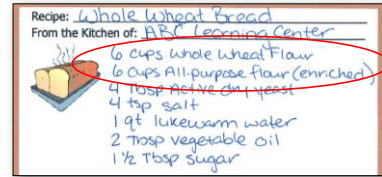 Recipe: Whole Wheat Bread
From the Kitchen of: ABC Learning Center
6 cups whole wheat flour
6 cups All-purpose flour (enriched)
4 Tbsp Active dry yeast
4 tsp salt
1 qt lukewarm water
2 Tbsp vegetable oil
1 1/2 Tbsp sugar